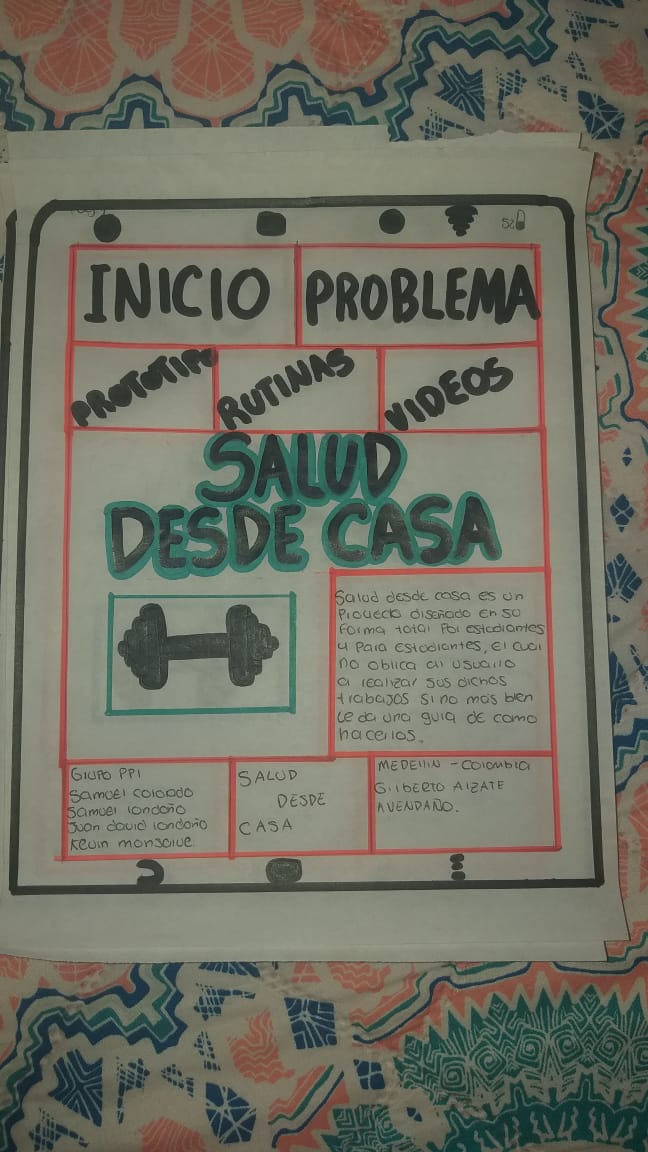 52
INICIO PROBLEMA
PROTOTIPO RUTINAS VIDEOS
SALUD
DESDE CASA
Salud desde casa es un
Proyecto diseñado en su
forma total Por estudiantes
y Para Estudiantes, el cual
no obliga al usuario
a realizar sus dichos
trabajos si no más bien
le da una guia de como
hacerlos.
Grupo PPI
Samuel colorado
Samuel londoño
Juan david londoño
Kevin monsalve
SALUD
DESDE
CASA
MEDELLIN - Colombia
Gilberto Alzate
AVENDAÑO.